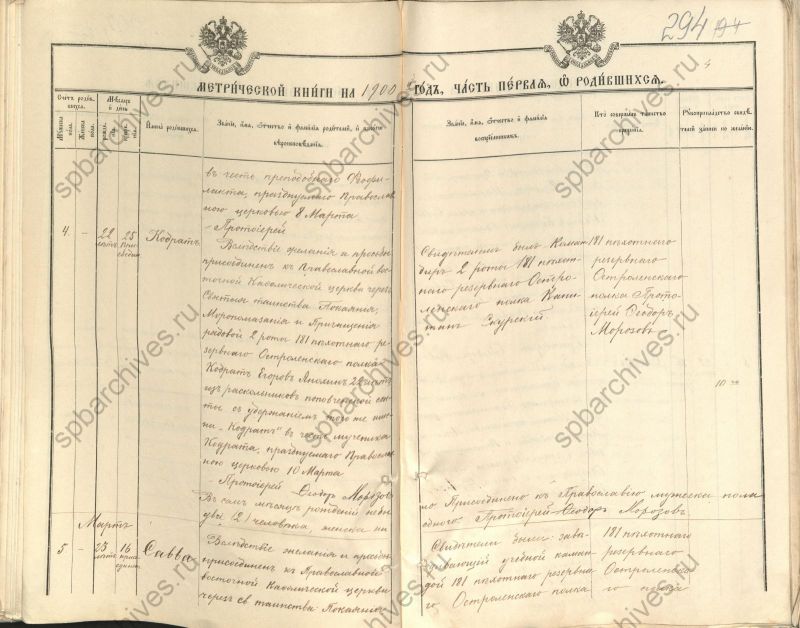 294 194
4
МЕТРИ́ЧЕСКОЙ КНИ́ГИ НА 1900 ГО́ДЪ, ЧА́СТЬ ПЕ́РВАЯ, Ѡ РОДИ́ВШИХСЯ.
Счетъ родившихся.
Мужеска пола.
Женска пола.
Мѣсяцъ и день
рожденія.
крещенія.
Имена родившихся.
Званіе, имя, отчество и фамилія родителей, и какого
вѣроисповѣданія.
Званіе, имя, отчество и фамилія
воспріемниковъ.
Кто совершалъ таинство
крещенія.
Рукоприкладство свидѣтелей записи по желанію.
въ честь преподобнаго Ѳеофи-
лакта, празднуемаго Православ-
ною церковью 8 Марта
Протоіерей
4.
-
22
лѣтъ
25
присоединен
Кодратъ
Вслѣдствіе желанія и просьбы
присоединен къ Православной вос-
точной Каѳолической церкви черезъ
Святыя таинства Покаянія,
Муропомазанія и Причащенія
рядовой 2 роты 181 пѣхотнаго ре-
зервнаго Остроленскаго полка
Кодратъ Егоровъ 22 лѣтъ
изъ раскольниковъ поповщенской сек-
ты съ удержаніемъ того же име-
ни „Кодратъ" въ честь мученика
Кодрата, празднуемаго Православ-
ною церковью 10 Марта
Протоіерей Ѳеодоръ Морозовъ
Свидѣтелемъ былъ Коман-
диръ 2 роты 181 пѣхот-
наго резервнаго Остро-
ленскаго полка Капи-
танъ Скурскій
181 пѣхотнаго
резервнаго
Остроленскаго
полка Прото-
іерей Ѳеодоръ
Морозовъ
Въ семъ мѣсяцѣ
два (2) человѣка, женска
но Присоединено къ Православію мужеска пола
Протоіерей Ѳеодоръ Морозовъ
Мартъ
5
-
23
лѣтъ
16
Савва
Вслѣдствіе желанія и просьбы
присоединен къ Православной
восточной Каѳолической церкви
черезъ св таинства: Покаянія
Свидѣтели были: завѣ-
дывающій учебной коман-
дой 181 пѣхотнаго резервна-
го Остроленскаго полка
181 пѣхотнаго
резервнаго
Остроленска-
го полка
spbarchives.ru
spbarchives.ru
spbarchives.ru
spbarchives.ru
spbarchives.ru
spbarchives.ru